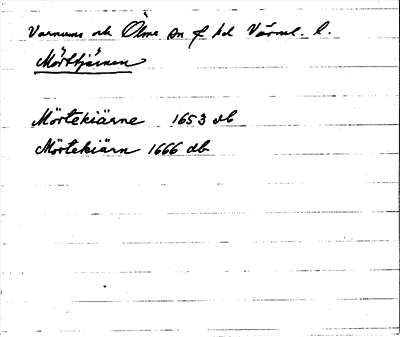 Varnums och Ölme sn f hd Värml. l.
Mörttjärnen
Mörtekiärne 1653 db
Mörtekiärn 1666 db